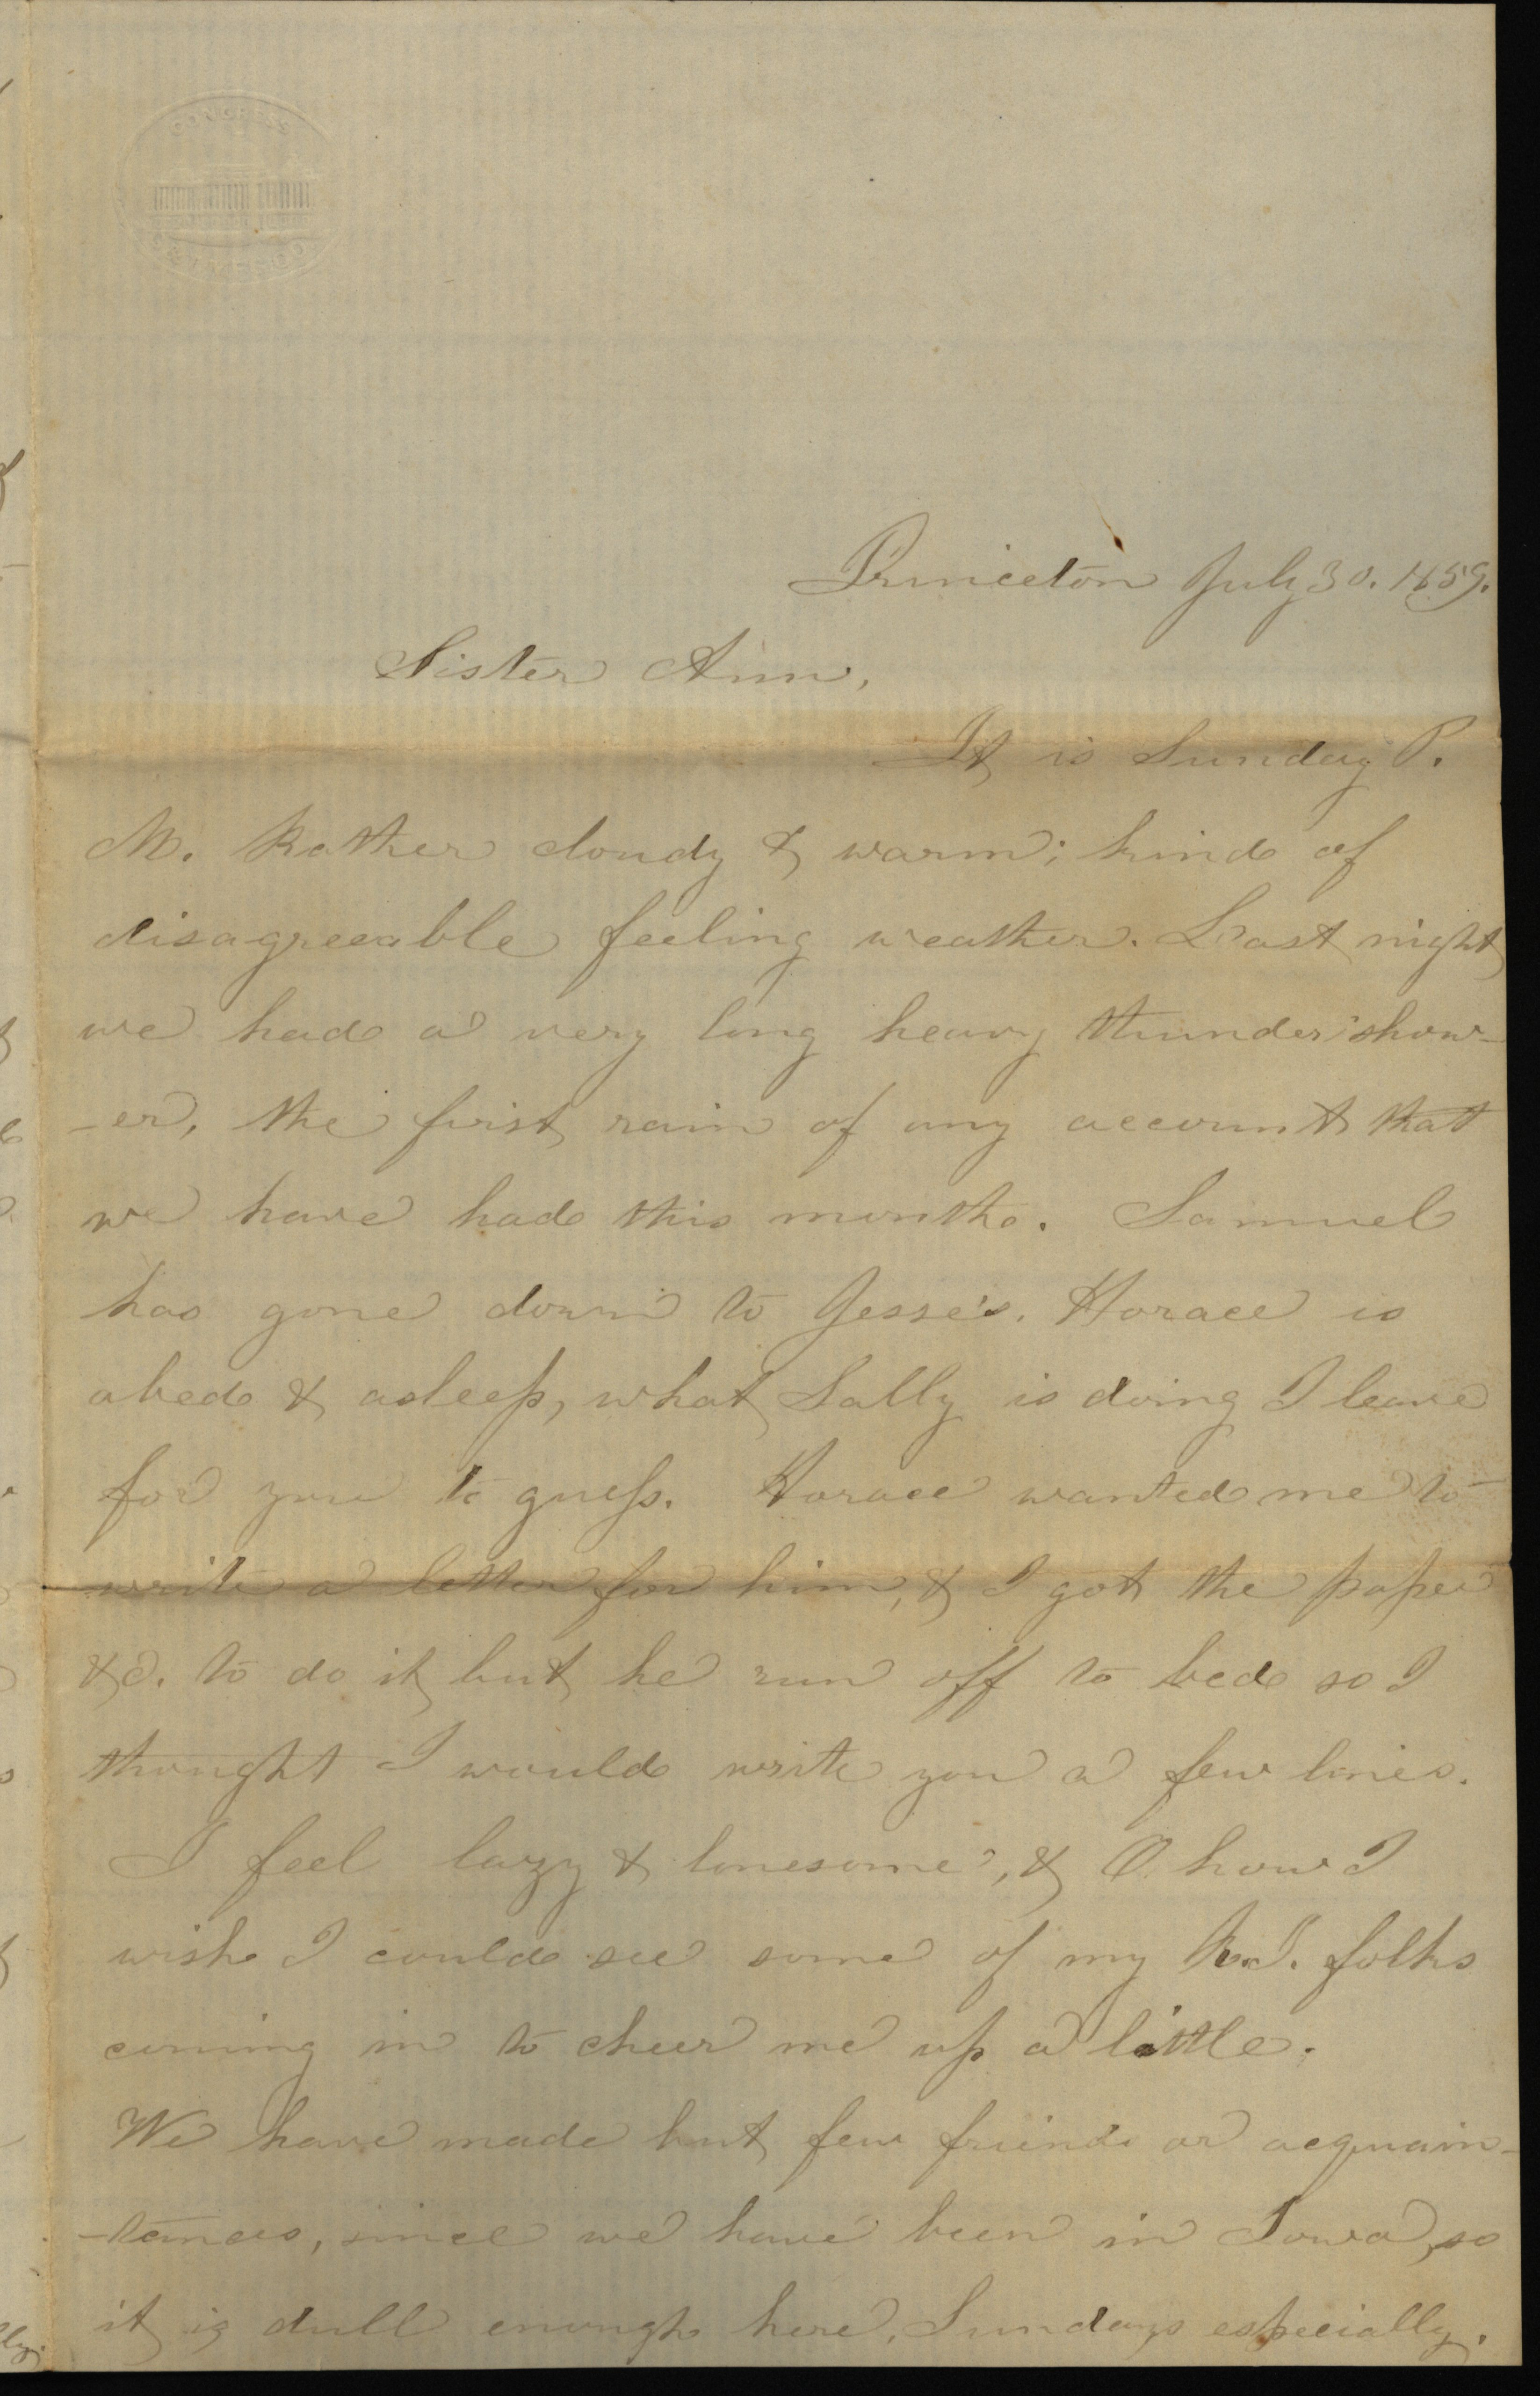 CONGRESS
Princeton July 30. 1859.
Sister Ann,
It is Sunday P.
M. Rather cloudy & warm; kind of
disagreeable feeling weather. Last night
we had a very long heavy thunder show-
-er, the first rain of any account that
we have had this month. Samuel
has gone down to Jesse's. Horace is
abed & asleep, what Sally is doing I leave
for you to guess. Horace wanted me to
write a letter for him, & I got the paper
&c. to do it but he run off to bed so I
thought I would write you a few lines.
I feel lazy & lonesome, & O how I
wish I could see some of my R.I. folks
coming in to cheer me up a little.
We have made but few friends or acquain-
-tances, since we have been in Iowa, so
it is dull enough here, Sundays especially.